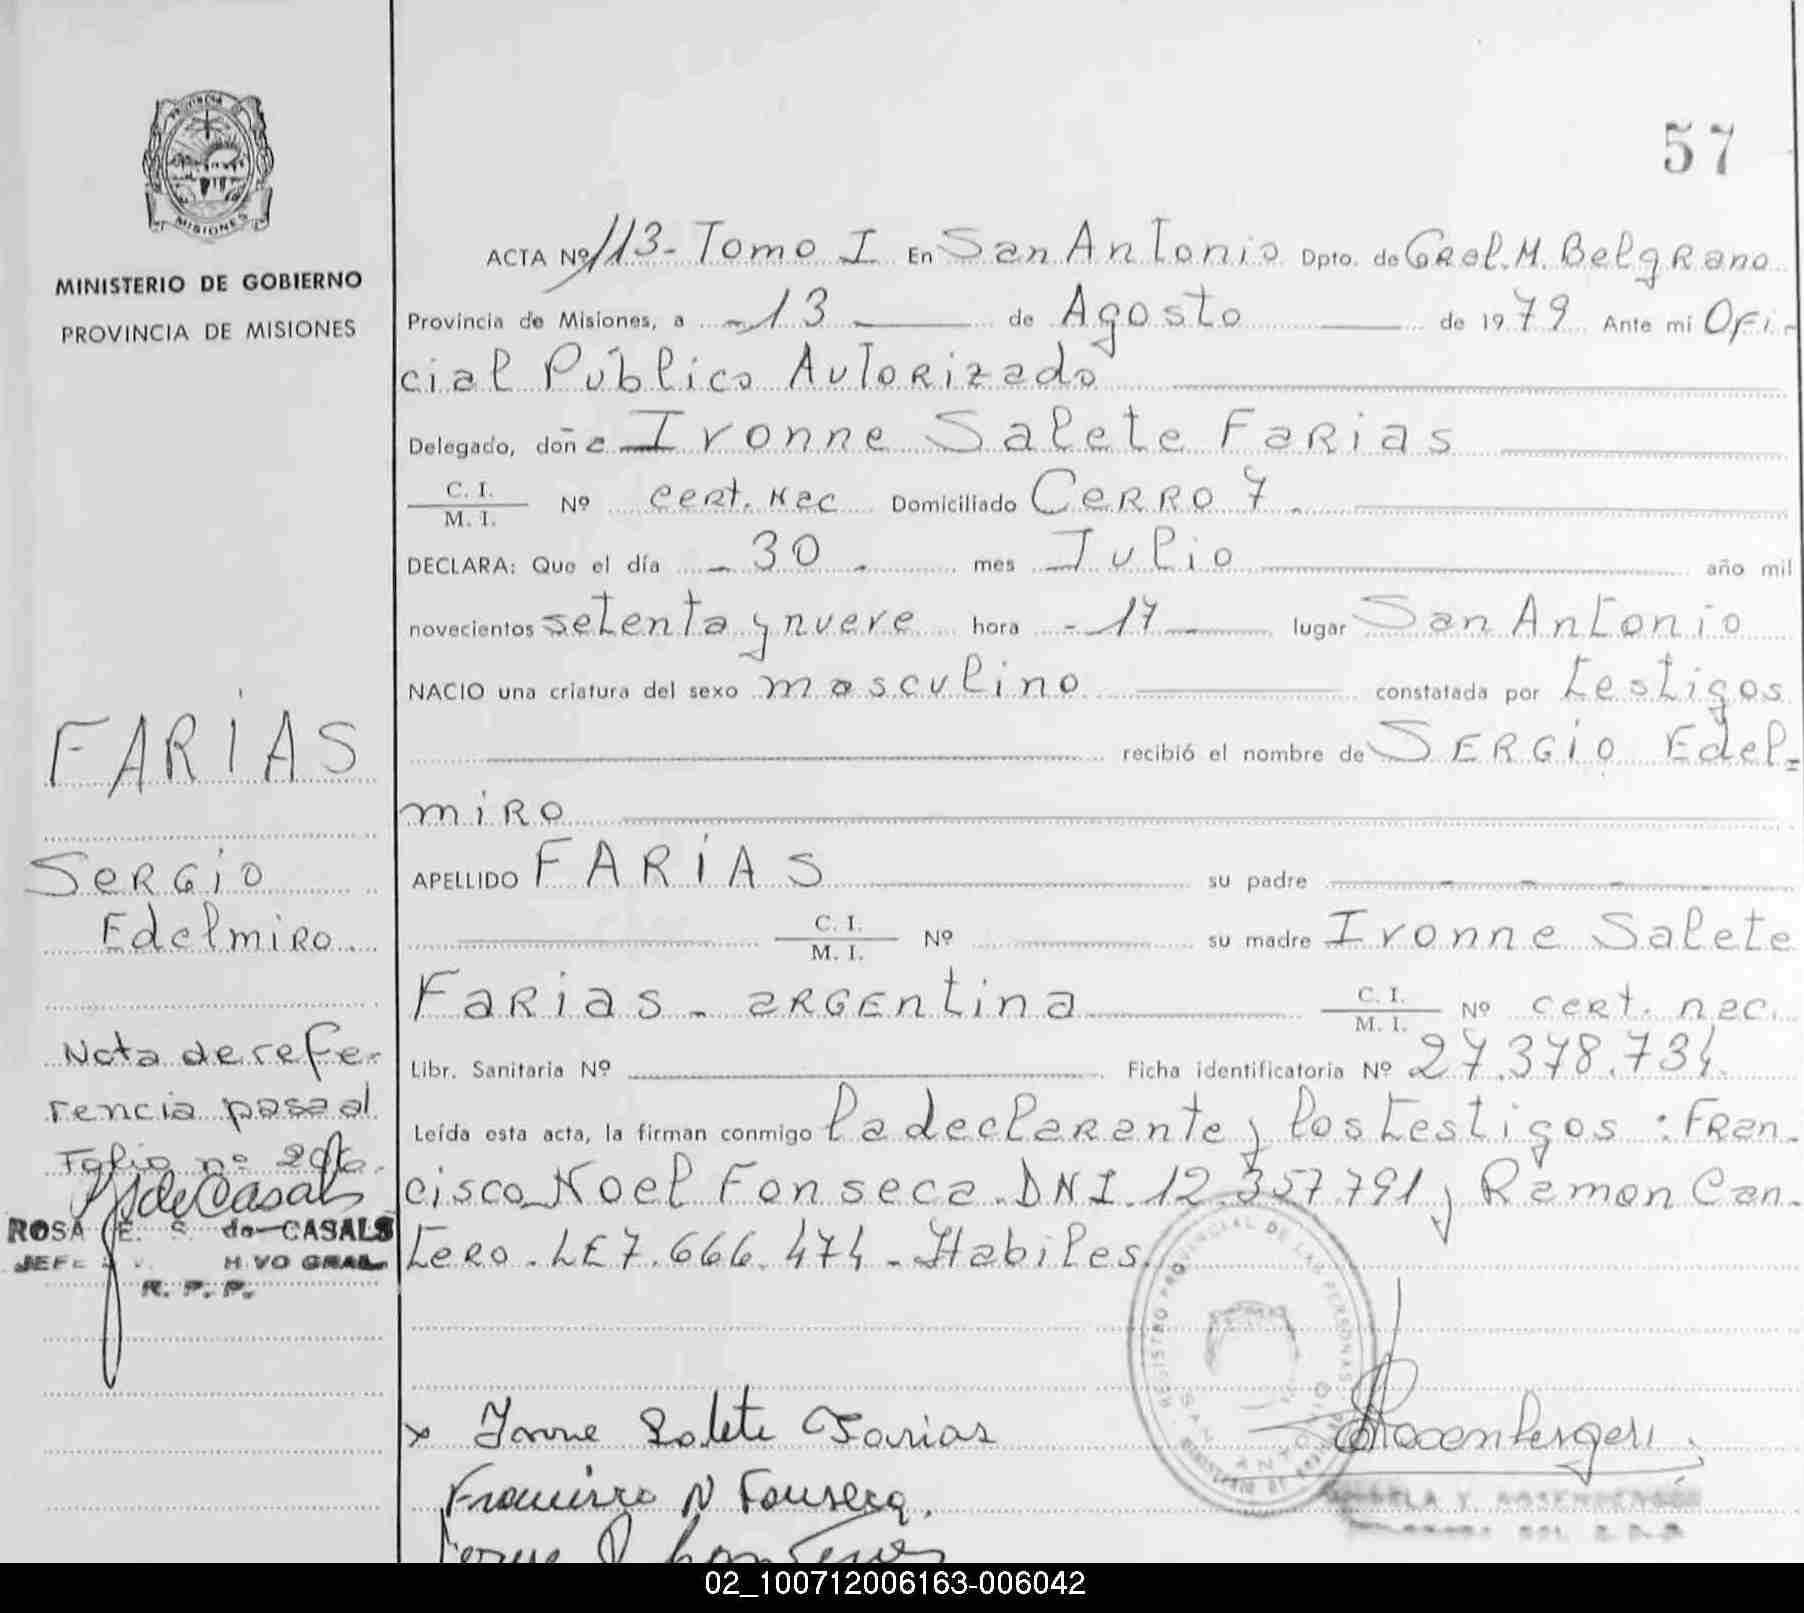 57
PROVINCIA DE
MISIONES
MINISTERIO DE GOBIERNO
PROVINCIA DE MISIONES
ACTA Nº 113- Tomo I En San Antonio Dpto. de Gral. M. Belgrano
Provincia de Misiones, a - 13 - de Agosto de 1979 Ante mi Ofi-
cial Público Autorizado
Delegado, doña Ivonne Salete Farias
C. I. / M. I. Nº cert. nac Domiciliado Cerro 7.
DECLARA: Que el día - 30 - mes Julio año mil
novecientos setenta y nueve hora - 17 - lugar San Antonio
NACIO una criatura del sexo masculino constatada por testigos
recibió el nombre de SERGIO Edel=
miro
APELLIDO FARIAS su padre - - - -
C. I. / M. I. Nº su madre Ivonne Salete
Farias - argentina C. I. / M. I. Nº cert. nac.
Libr. Sanitaria Nº Ficha identificatoria Nº 27.378.734
Leída esta acta, la firman conmigo la declarante y los testigos: Fran-
cisco Noel Fonseca DNI 12 357 791 y Ramon Can-
tero. LE 7.666.474 - Habiles.
FARIAS
Sergio
Edelmiro.
Nota de refe-
rencia pasa al
Folio nº
R de Casals
ROSA E. S. de CASALS
JEFE
GRAL.
R. P. P.
REGISTRO PROVINCIAL DE LAS PERSONAS
SAN ANTONIO
x Ivonne Salete Farias
Francisco N Fonseca.
02_100712006163-006042